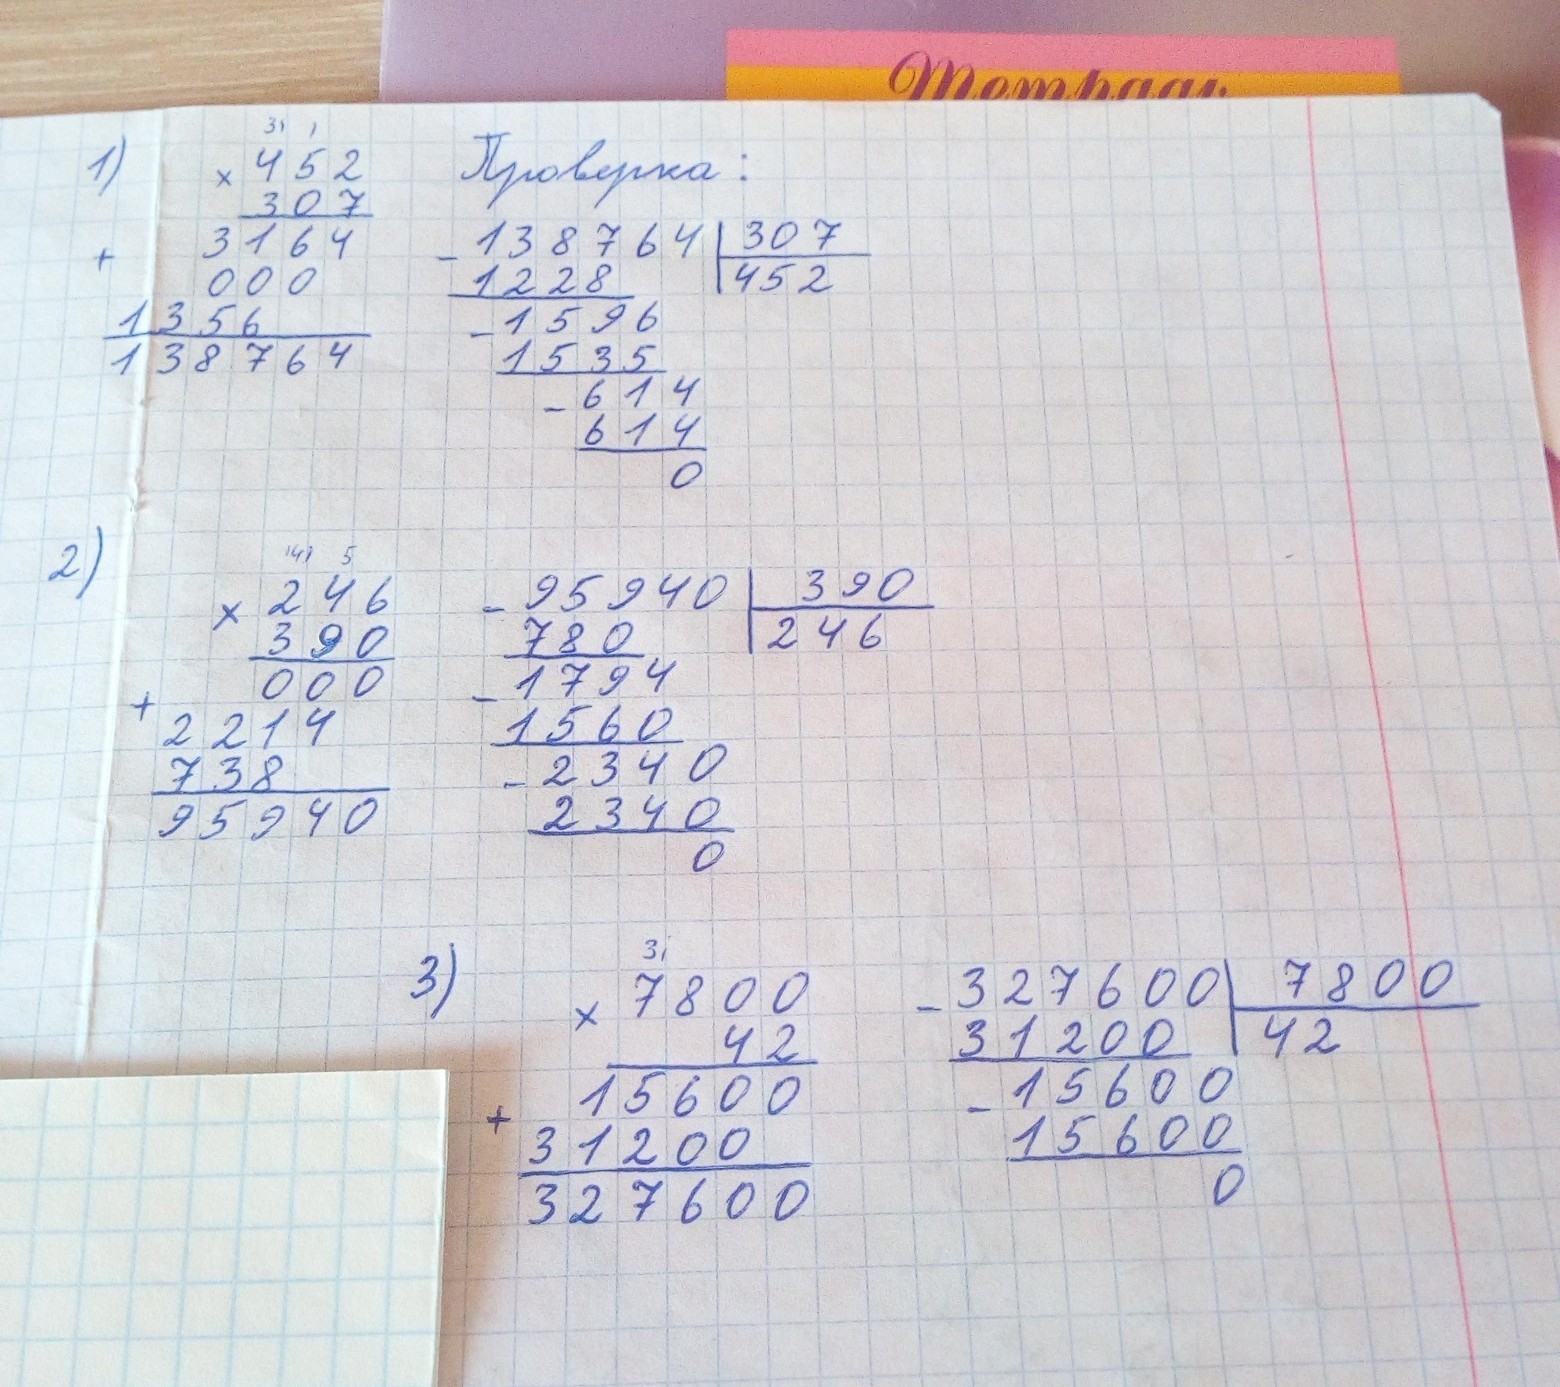 Тетрадь
1)
31 1
× 452
307
+ 3164
000
1356
138764
Проверка:
- 138764 | 307
1228 | 452
- 1596
1535
- 614
614
0
2)
141 5
× 246
390
000
+ 2214
738
95940
- 95940 | 390
780 | 246
- 1794
1560
- 2340
2340
0
3)
31
× 7800
42
15600
+ 31200
327600
- 327600 | 7800
31200 | 42
- 15600
15600
0